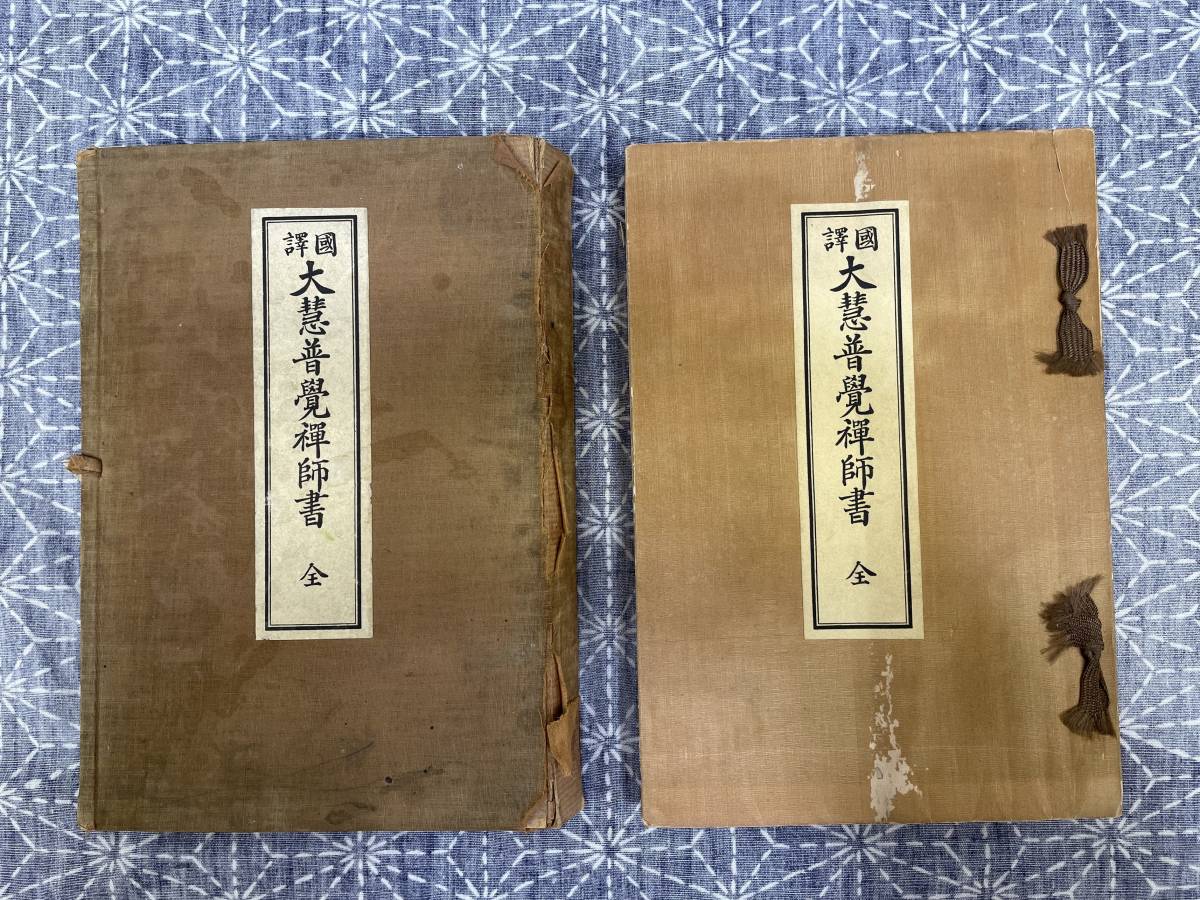 國譯
大慧普覺禪師書 全
國譯
大慧普覺禪師書 全